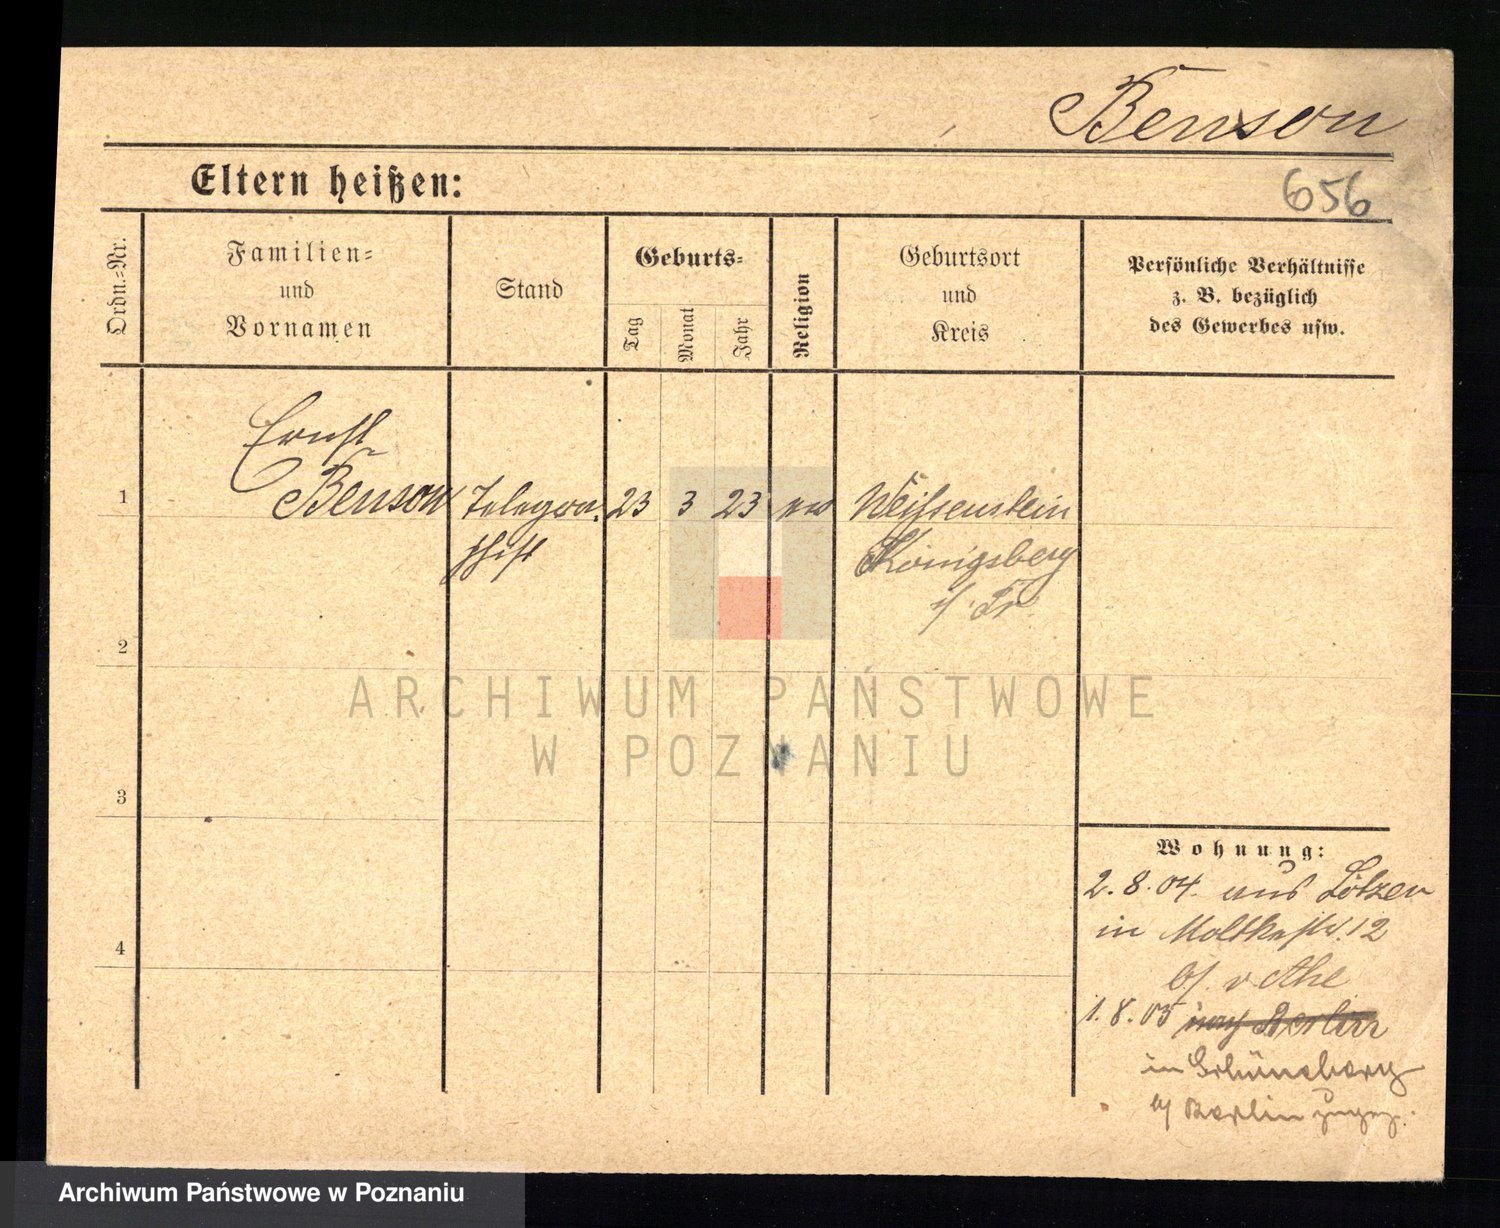 Benson
Eltern heißen:
656
Ordn.-Nr.
Familien-
und
Vornamen
Stand
Geburts-
Tag
Monat
Jahr
Religion
Geburtsort
und
Kreis
Persönliche Verhältnisse
z. B. bezüglich
des Gewerbes usw.
Ernst
1 Benson Telegra- 23 3 23 ev Weißenstein
phist Königsberg
i/ Pr.
2
ARCHIWUM PAŃSTWOWE
W POZNANIU
3
4
Wohnung:
2.8.04. aus Lötzen
in Moltkestr. 12
b/ v
1.8.05 nach Berlin
in Schöneberg
b/ Berlin zugez.
Archiwum Państwowe w Poznaniu